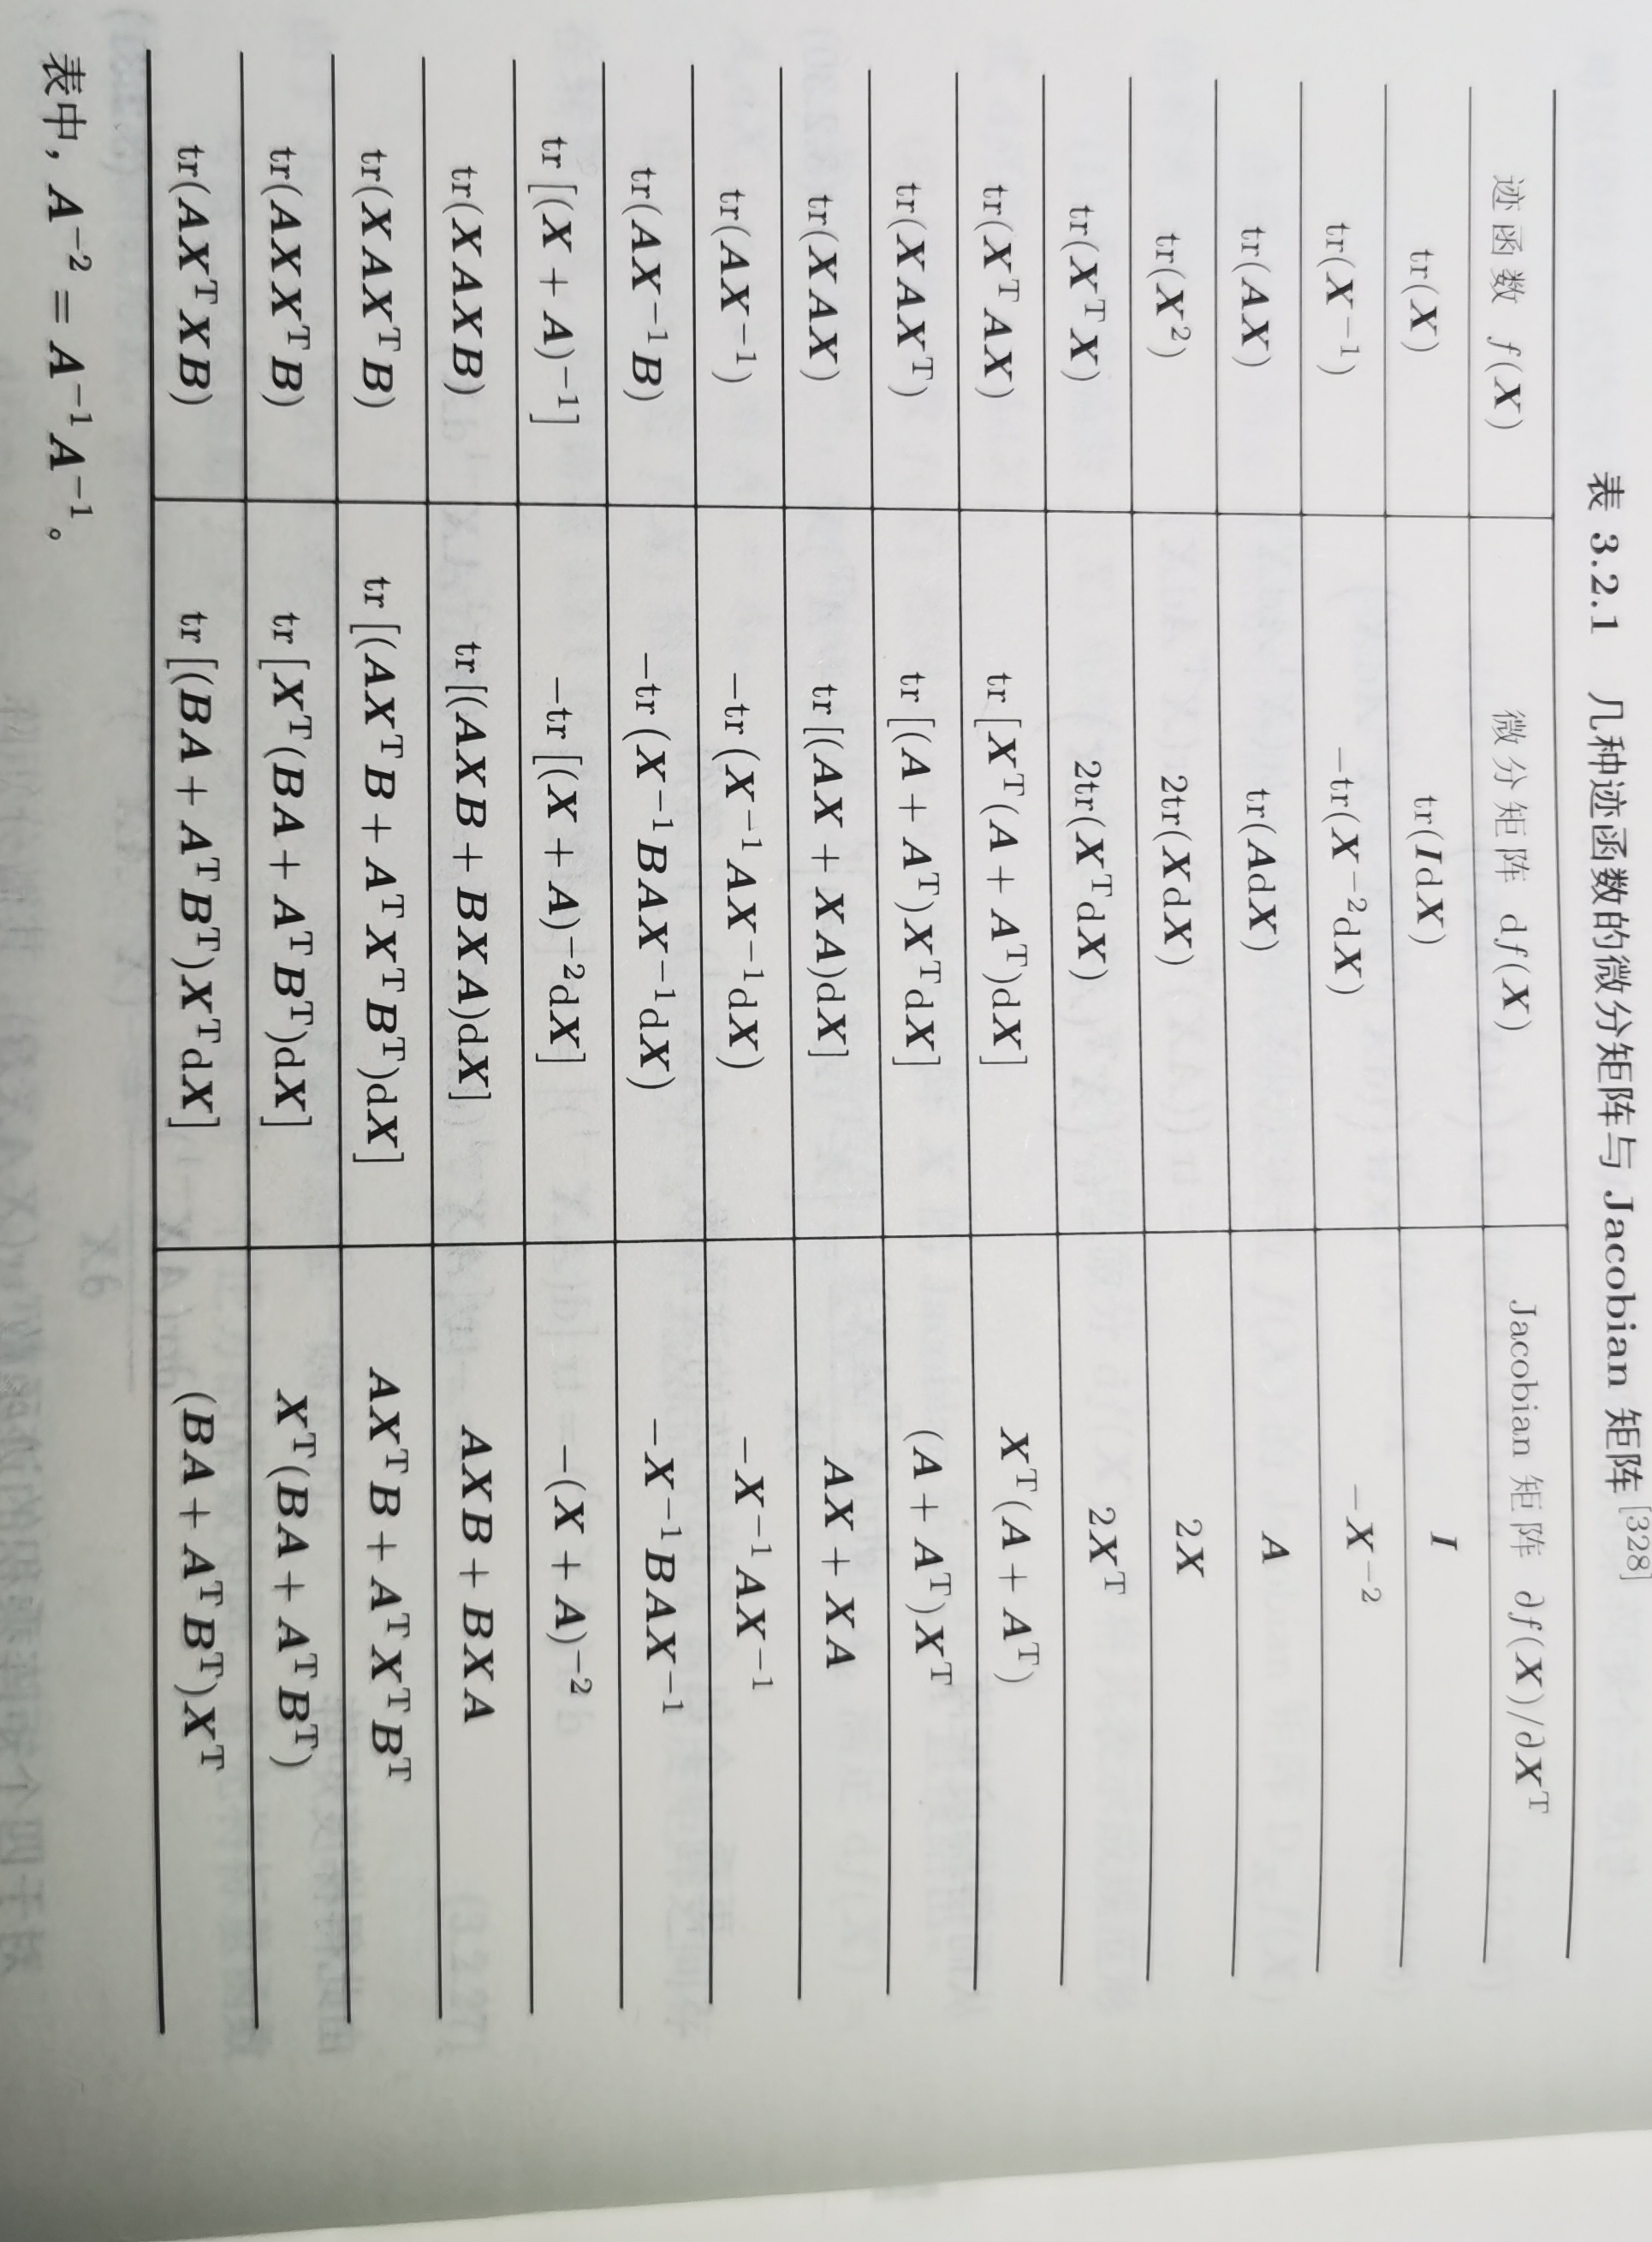 表 3.2.1 几种迹函数的微分矩阵与 Jacobian 矩阵[328]
迹函数 f(X) 微分矩阵 df(X) Jacobian 矩阵 ∂f(X)/∂Xᵀ
tr(X) tr(IdX) I
tr(X⁻¹) −tr(X⁻²dX) −X⁻²
tr(AX) tr(AdX) A
tr(X²) 2tr(XdX) 2X
tr(XᵀX) 2tr(XᵀdX) 2Xᵀ
tr(XᵀAX) tr[Xᵀ(A + Aᵀ)dX] Xᵀ(A + Aᵀ)
tr(XAXᵀ) tr[(A + Aᵀ)XᵀdX] (A + Aᵀ)Xᵀ
tr(XAX) tr[(AX + XA)dX] AX + XA
tr(AX⁻¹) −tr(X⁻¹AX⁻¹dX) −X⁻¹AX⁻¹
tr(AX⁻¹B) −tr(X⁻¹BAX⁻¹dX) −X⁻¹BAX⁻¹
tr[(X + A)⁻¹] −tr[(X + A)⁻²dX] −(X + A)⁻²
tr(XAXB) tr[(AXB + BXA)dX] AXB + BXA
tr(XAXᵀB) tr[(AXᵀB + AᵀXᵀBᵀ)dX] AXᵀB + AᵀXᵀBᵀ
tr(AXXᵀB) tr[Xᵀ(BA + AᵀBᵀ)dX] Xᵀ(BA + AᵀBᵀ)
tr(AXᵀXB) tr[(BA + AᵀBᵀ)XᵀdX] (BA + AᵀBᵀ)Xᵀ
表中，A⁻² = A⁻¹A⁻¹。